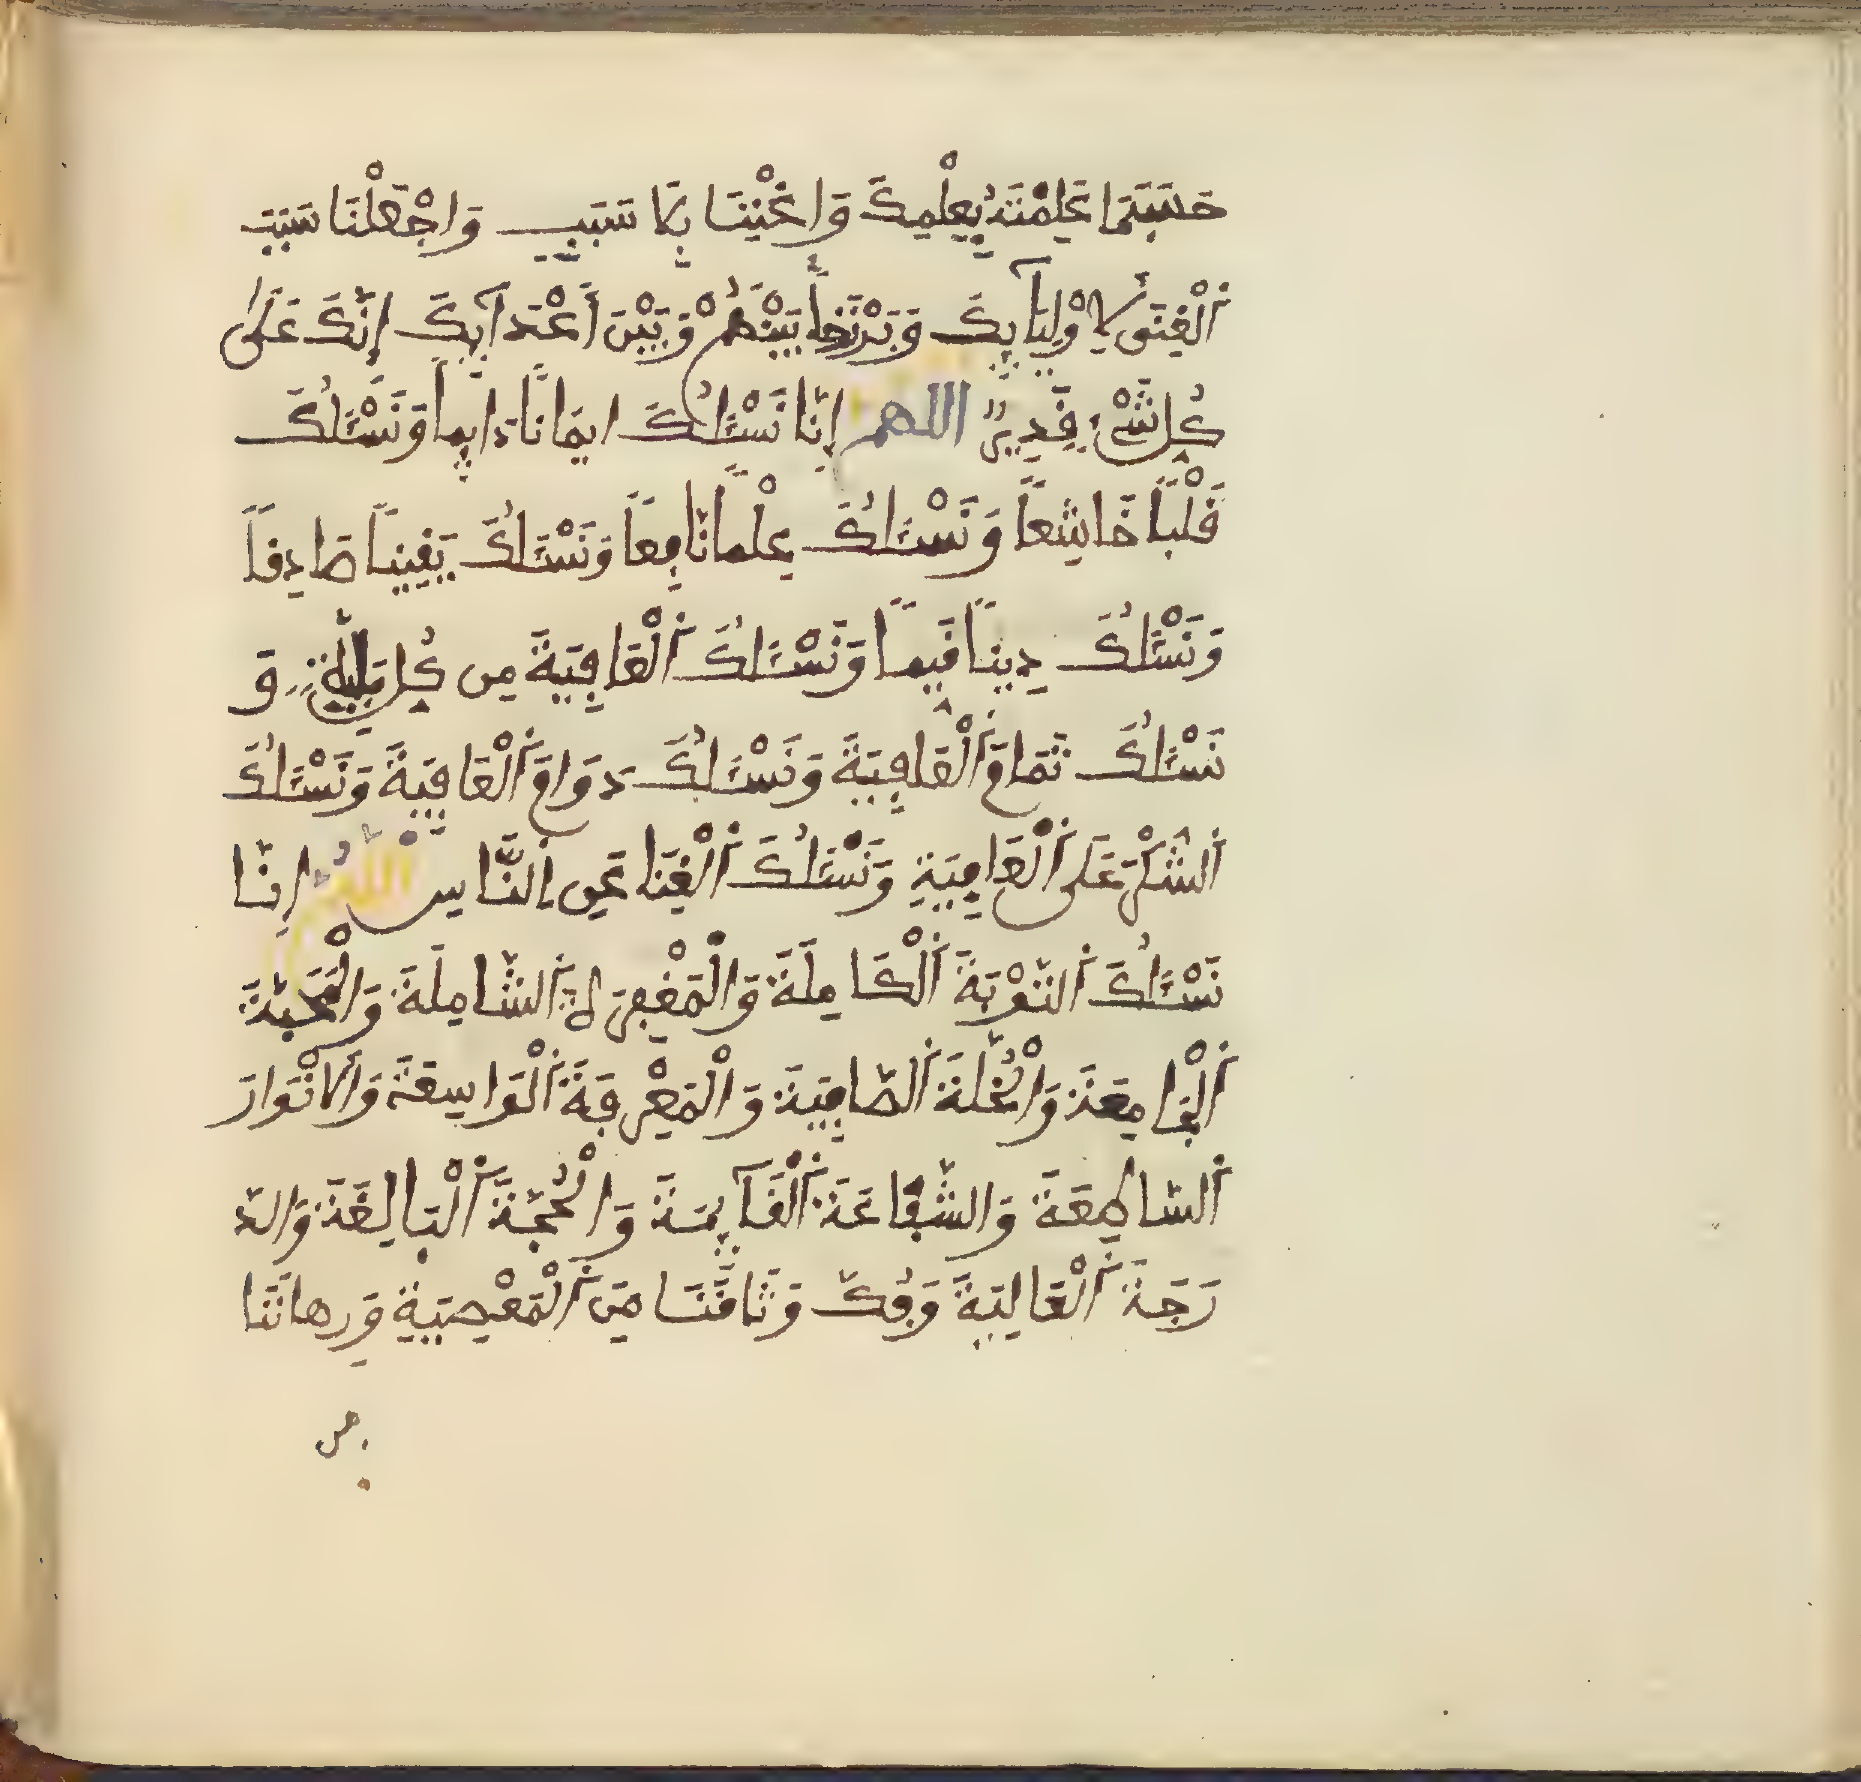 حَسَبَمَا عَلِمْتَهُ بِعِلْمِكَ وَاغْنِنَا بِلَا سَبَبٍ وَاجْعَلْنَا سَبَبَ
الْغِنَى لِأَوْلِيَآئِكَ وَبَرْزَخاً بَيْنَهُمْ وَبَيْنَ أَعْدَآئِكَ إِنَّكَ عَلَى
كُلِّ شَيْءٍ قَدِيرٌ اللهم إِنَّا نَسْئَلُكَ ايمَانًا دَايِماً وَنَسْئَلُكَ
قَلْباً خَاشِعاً وَنَسْئَلُكَ عِلْماً نَّافِعاً وَنَسْئَلُكَ يَقِيناً صَادِقاً
وَنَسْئَلُكَ دِيناً قَيِّماً وَنَسْئَلُكَ الْعَافِيَةَ مِن كُلِّ بَلِيَّةٍ وَ
نَسْئَلُكَ تَمَامَ الْعَافِيَةَ وَنَسْئَلُكَ دَوَامَ الْعَافِيَةَ وَنَسْئَلُكَ
الشُّكْرَ عَلَى الْعَافِيَةِ وَنَسْئَلُكَ الْغِنَا عَنِ النَّاسِ اللَّهُمَّ إِنَّا
نَسْئَلُكَ التَّوْبَةَ الْكَامِلَةَ وَالْمَغْفِرَةَ الشَّامِلَةَ وَالْمَحَبَّةَ
الْجَامِعَةَ وَالْخُلَّةَ الصَّافِيَةَ وَالْمَعْرِفَةَ الْوَاسِعَةَ وَالْأَنْوَارَ
السَّاطِعَةَ وَالشَّفَاعَةَ الْقَآئِمَةَ وَالْحُجَّةَ الْبَالِغَةَ وَالدَّ
رَجَةَ الْعَالِيَةَ وَفُكَّ وَثَاقَنَا مِنَ الْمَعْصِيَةِ وَرِهَانَنَا